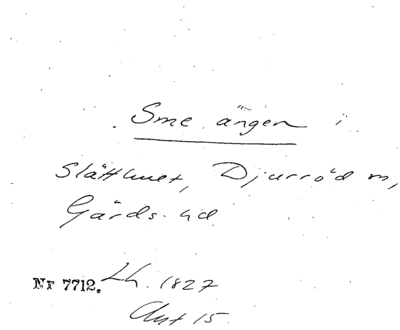 Sme ängen i
Slätthult, Djurröd m,
Gärds hd
Nr 7712. Lh. 1827
Akt 15.